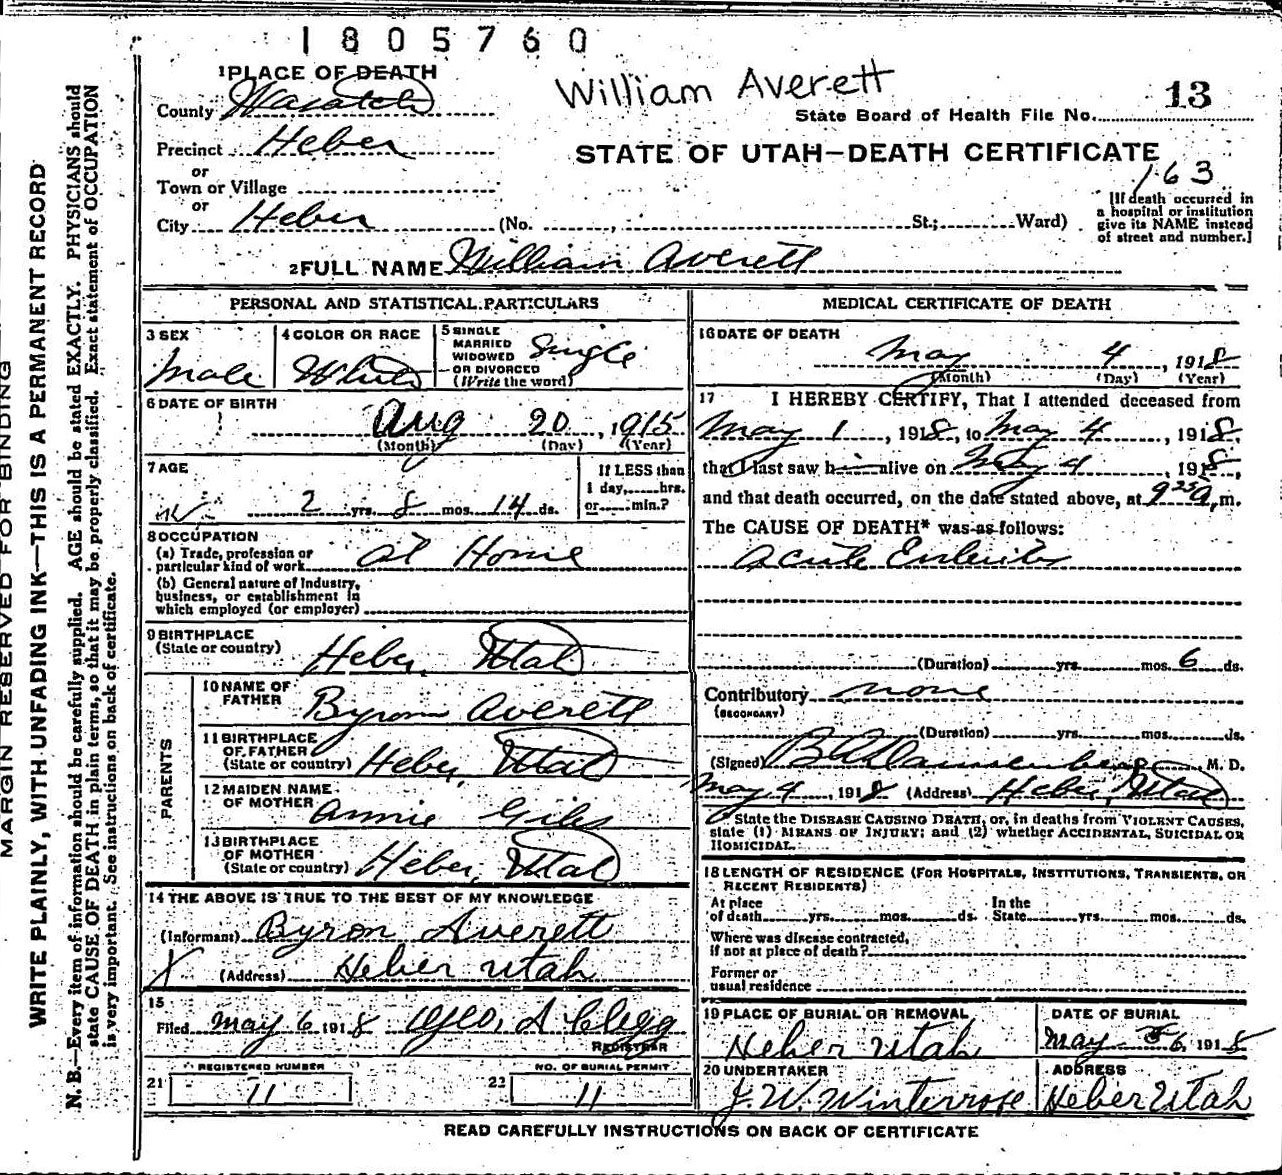 1805760
1 PLACE OF DEATH
William Averett
13
County Wasatch
State Board of Health File No.
Precinct Heber
STATE OF UTAH—DEATH CERTIFICATE
163
or
Town or Village
or
City Heber (No. , St.; Ward)
[If death occurred in
a hospital or institution
give its NAME instead
of street and number.]
2 FULL NAME William Averett
PERSONAL AND STATISTICAL PARTICULARS
3 SEX
Male
4 COLOR OR RACE
White
5 SINGLE
MARRIED
WIDOWED
OR DIVORCED
(Write the word)
Single
6 DATE OF BIRTH
Aug 20, 1915
(Month) (Day) (Year)
7 AGE
2 yrs. 8 mos. 14 ds.
If LESS than
1 day, hrs.
or min.?
8 OCCUPATION
(a) Trade, profession or
particular kind of work at Home
(b) General nature of Industry,
business, or establishment in
which employed (or employer)
9 BIRTHPLACE
(State or country) Heber, Utah
PARENTS
10 NAME OF
FATHER Byron Averett
11 BIRTHPLACE
OF FATHER
(State or country) Heber, Utah
12 MAIDEN NAME
OF MOTHER Annie Giles
13 BIRTHPLACE
OF MOTHER
(State or country) Heber, Utah
14 THE ABOVE IS TRUE TO THE BEST OF MY KNOWLEDGE
(Informant) Byron Averett
X (Address) Heber Utah
15
Filed May 6 1918 Geo. A Clegg
REGISTRAR
REGISTERED NUMBER
21 11
NO. OF BURIAL PERMIT
22 11
MEDICAL CERTIFICATE OF DEATH
16 DATE OF DEATH
May 4, 1918
(Month) (Day) (Year)
17 I HEREBY CERTIFY, That I attended deceased from
May 1, 1918, to May 4, 1918,
that I last saw him alive on May 4, 1918,
and that death occurred, on the date stated above, at 9 25 a, m.
The CAUSE OF DEATH* was as follows:
Acute
(Duration) yrs. mos. 6 ds.
Contributory none
(SECONDARY)
(Duration) yrs. mos. ds.
(Signed) M. D.
May 4, 1918 (Address) Heber, Utah
State the DISEASE CAUSING DEATH, or, in deaths from VIOLENT CAUSES,
state (1) MEANS OF INJURY; and (2) whether ACCIDENTAL, SUICIDAL OR
HOMICIDAL.
18 LENGTH OF RESIDENCE (FOR HOSPITALS, INSTITUTIONS, TRANSIENTS, OR
RECENT RESIDENTS)
At place
of death yrs. mos. ds.
In the
State yrs. mos. ds.
Where was disease contracted,
if not at place of death?
Former or
usual residence
19 PLACE OF BURIAL OR REMOVAL
Heber Utah
DATE OF BURIAL
May 6, 1918
20 UNDERTAKER
J. W. Winterrose
ADDRESS
Heber Utah
READ CAREFULLY INSTRUCTIONS ON BACK OF CERTIFICATE
MARGIN RESERVED FOR BINDING
WRITE PLAINLY, WITH UNFADING INK—THIS IS A PERMANENT RECORD
N. B.—Every item of information should be carefully supplied. AGE should be stated EXACTLY. PHYSICIANS should
state CAUSE OF DEATH in plain terms, so that it may be properly classified. Exact statement of OCCUPATION
is very important. See instructions on back of certificate.